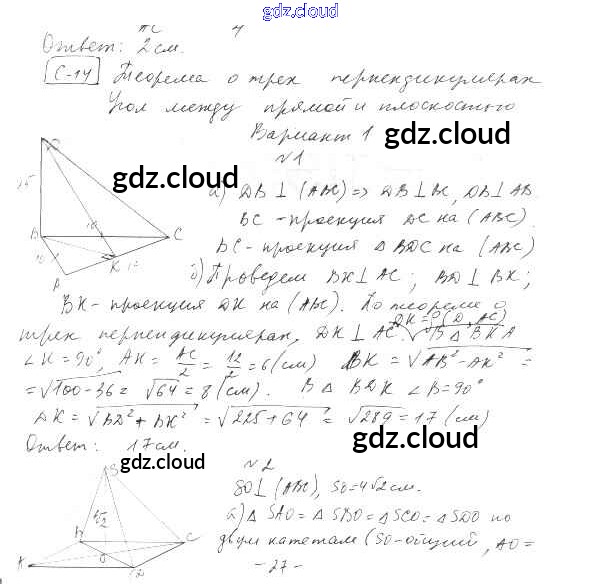 gdz.cloud
Ответ: 2 см.
С-14 Теорема о трех перпендикулярах
Угол между прямой и плоскостью
Вариант 1 gdz.cloud
№1
gdz.cloud
а) DB ⊥ (ABC) => DB ⊥ BC, DB ⊥ AB
BC - проекция DC на (ABC)
BC - проекция △ BDC на (ABC)
б) Проведем BK ⊥ AC; BD ⊥ BK;
BK - проекция DK на (ABC). По теореме о
трех перпендикулярах, DK ⊥ AC. DK = ρ(D, AC) В △ BKA
∠K = 90°, AK = AC/2 = 12/2 = 6 (см) BK = √AB² - AK² =
= √100 - 36 = √64 = 8 (см). В △ BDK ∠B = 90°
DK = √BD² + BK² = √225 + 64 = √289 = 17 (см)
Ответ: 17 см.
gdz.cloud
gdz.cloud
№2
SO ⊥ (ABC), SO = 4√2 см.
а) △ SAO = △ SBO = △ SCO = △ SDO по
двум катетам (SO - общий, AO =
- 27 -
gdz.cloud